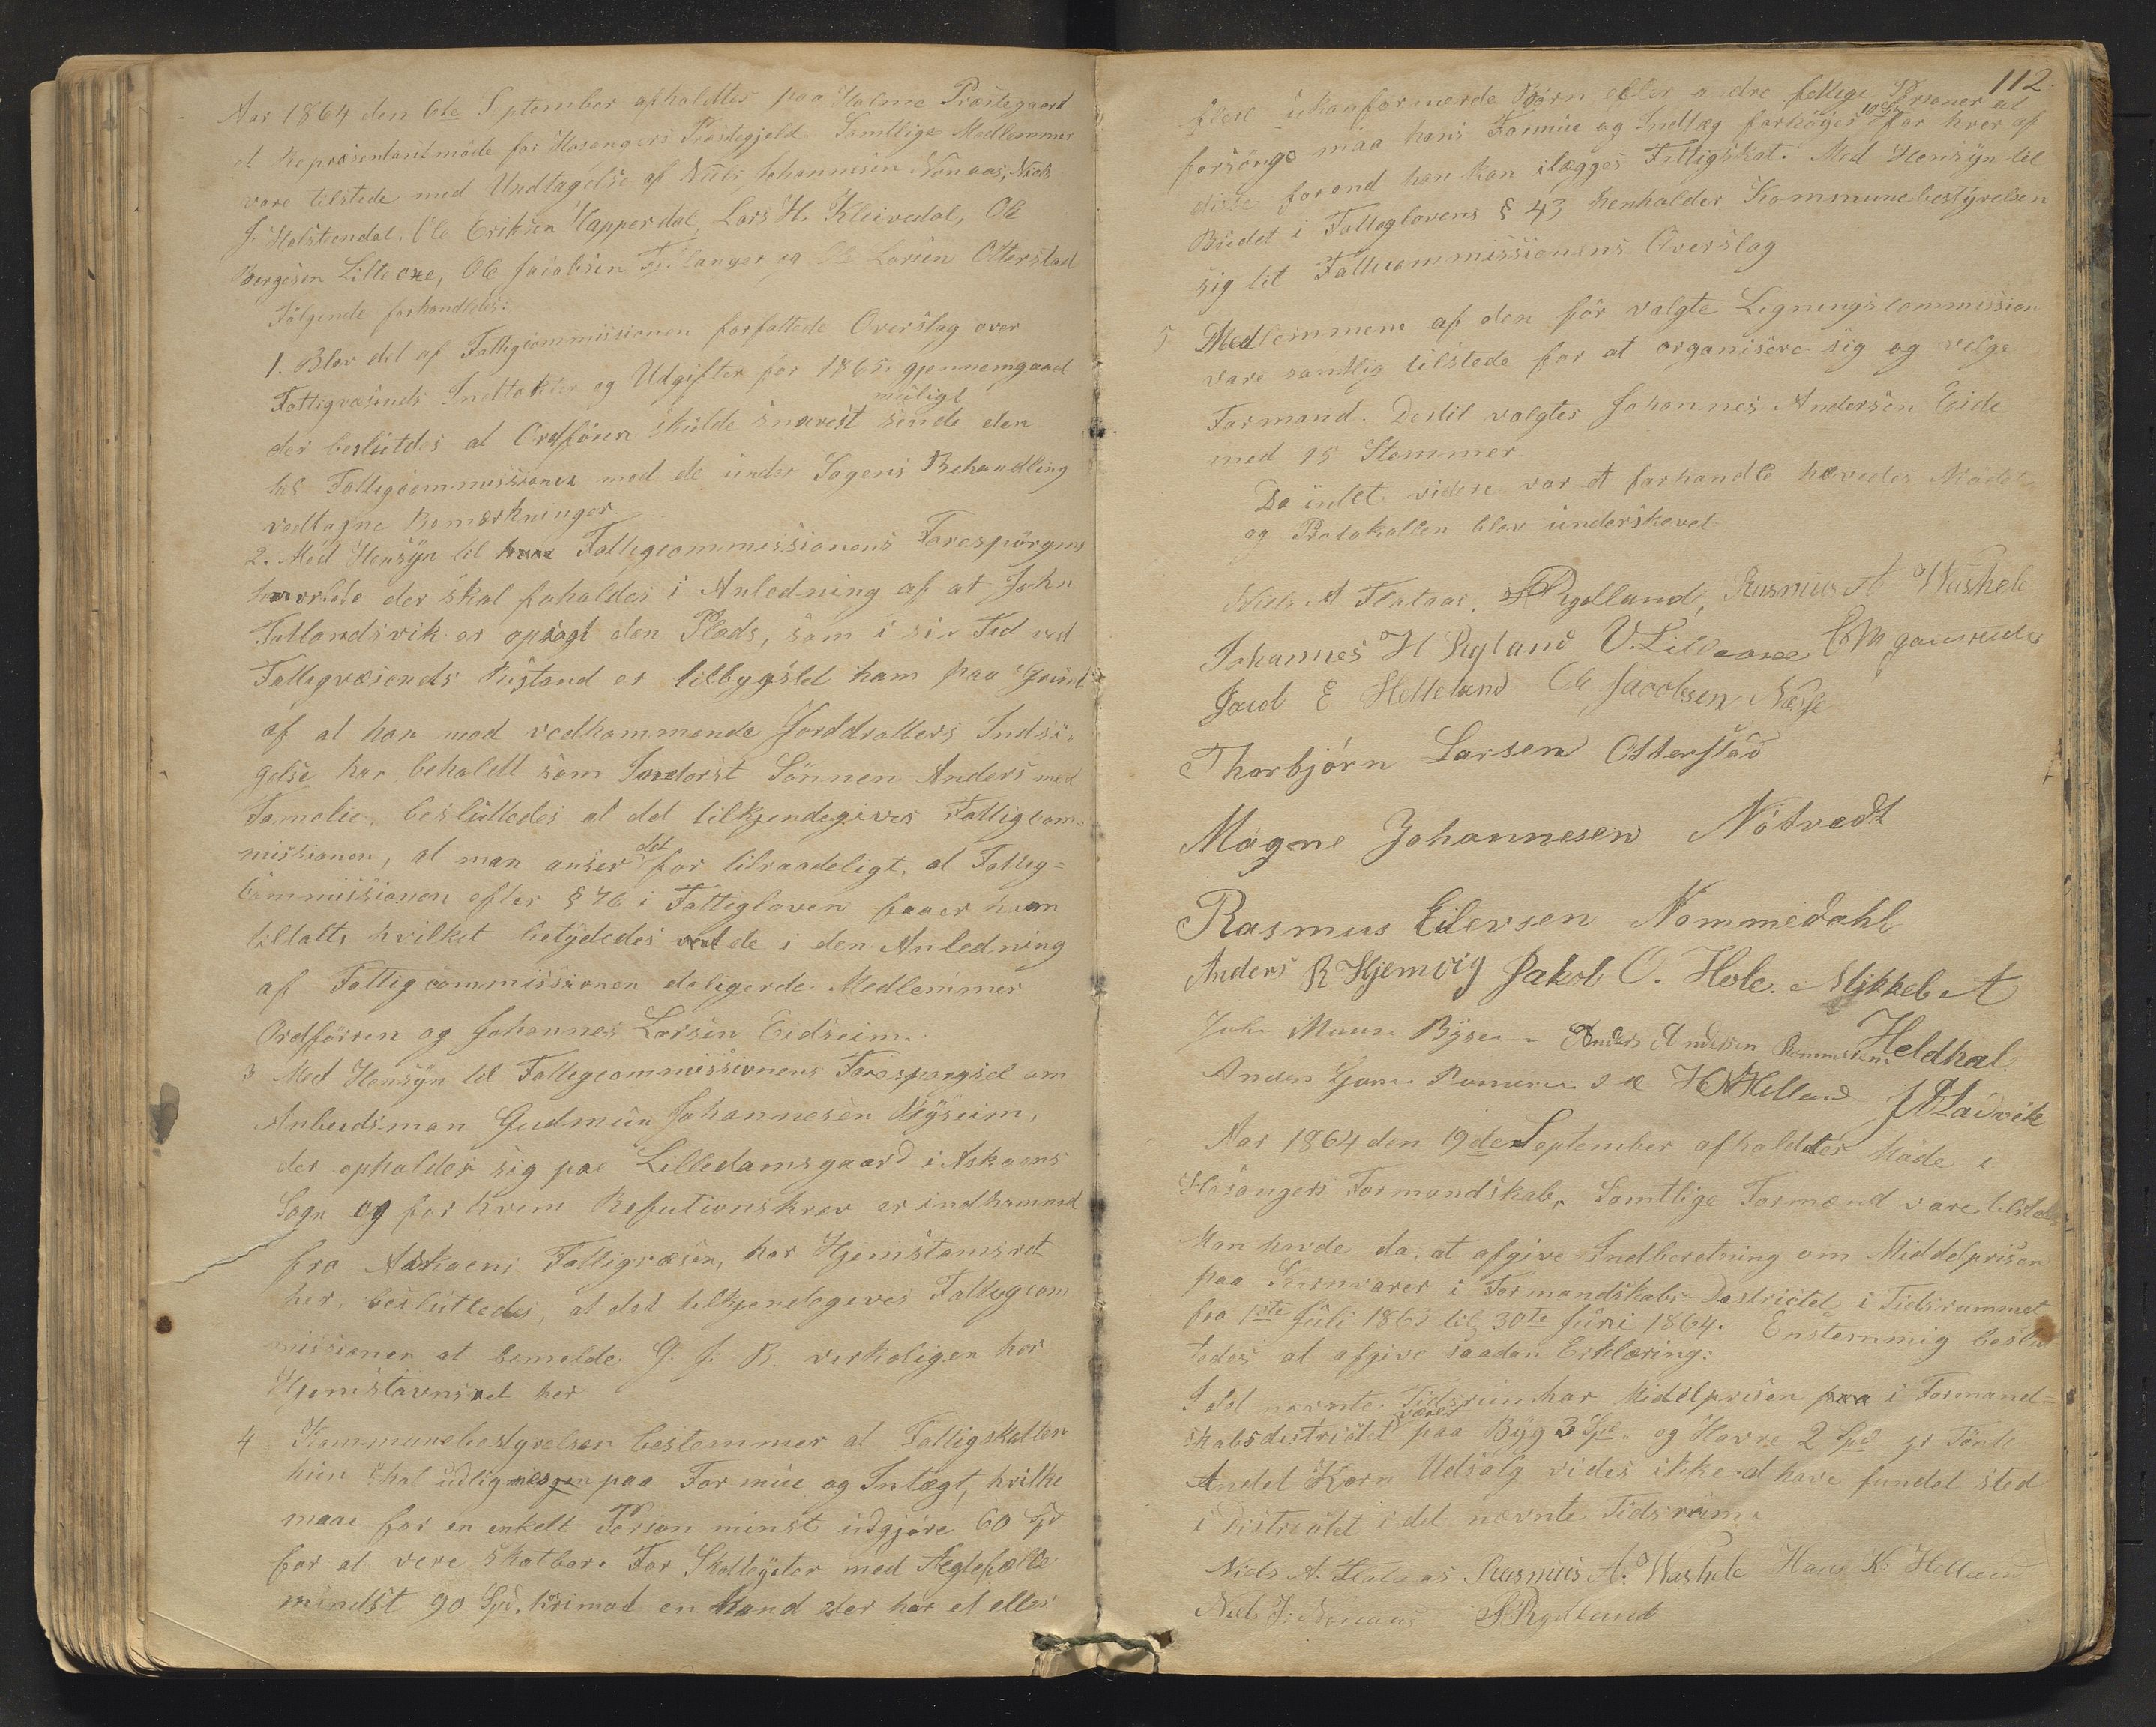 Aar 1864 den 6te September afholdtes paa Holme Præstegaard
et Repræsentantmöde for Hosangers Præstegjeld. Samtlige Medlemmer
vare tilstede med Undtagelse af Niels Johannesen Nonaas, Niels
J. Ole Eriksen Lars H. Kleivedal, Ole
Börgesen Ole Jacobsen og Ole Larsen Otterstad
Fölgende forhandledes:
1. Blev det af Fattigcommissionen forfattede Overslag over
Fattigvæsenets Indtækter og Udgifter for 1865 gjennemgaaet
der beslutdes at Ordföreren skulde snarest muligt sende den
til Fattigcommissionen med de under Sagens Behandling
vedtagne Bemærkninger.
2. Med Hensyn til Fattigcommissionens Forespörgsel
hvorlede der skal forholdes i Anledning af at John
Tallandsvik er opsagt den Plads, som i sin Tid ved
Fattigvæsenets Bistand er tilbygslet ham paa Grund
af at han mod vedkommende Jorddrotters Indsi-
gelse har behaldt som Inderst Sönnen Anders med
Familie, besluttedes at det tilkjendegives Fattigcom-
missionen, at man anser det for tilraadeligt, at Fattig=
Commissionen efter § 46 i Fattigloven faaer ham
tiltalt, hvilket betydedes de i den Anledning
af Fattigcommissionen deligerde Medlemmer
Ordföreren og Johannes Larsen Eidseim.
3 Med Hensyn til Fattigcommissionens Forespørgsel om
Anbudsman Gudmun Johannesen
der opholder sig paa Lilledamsgaard i Askøens
Sogn og for hvem Refutionskrav er indkommed
fra Askøens Fattigvæsen, har Hjemstamsret
her, besluttedes, at det tilkjendegives Fattigcom
missionen at bemelde G. J. B. verkeligen har
Hjemstavnsret her
4 Kommunebestyrelsen bestemmer at Fattigskatten
kun skal udlignes paa Formue og Intægt, hvilke
maae for en enkelt Person minst udgjöre 60 Spd
for at vere skatbar. For Skatteyder med Ægtefælle
mindst 90 Spd. hvis en Mand der har et eller
112.
flere ukonfirmerde Börn eller andre fattige Personer at
forsörge maa hans Formue og Indtæg forhöies 10 Spd for hver af
disse forend han kan ilægges Fattigskat. Med Hensyn til
Budet i Fattiglovens § 43 henholder Kommunebestyrelsen
sig til Fattigcommissionens Overslag
5 Medlemmem af den för valgte Ligningscommission
vare samtlig tilstede for at organisere sig og velge
Formand. Dertil valgtes Johannes Andersen Eide
med 15 Stemmer
Da intet videre var at forhandle hævedes Mödet
og Protokollen blev underskevet
Niels A Flataas, Rydland, Rasmus A Washele
Johannes H Ryland
Jacob E Helleland Ole Jacobsen Næsse
Thorbjörn Larsen Otterstad
Magne Johannesen Nötvedt
Rasmus Eilersen Nommedahl
Anders R Hjemvig Jakob O. Hole. Mikkel A
Heldhal
John Anders Andersen
H N Helland J Ladvik
Aar 1864 den 19de September afholdtes Möde i
Hosangers Formandskab. Samtlige Formænd vare tilstede
Man havde da at afgive Indberetning om Middelprisen
paa Kornvarer i Formandskabs-Destrictet i Tidsrummet
fra 1ste Juli 1863 til 30te Juni 1864. Enstemmig beslut
tedes at afgive saadan Erklæring:
I det nævnte Tidsrum har Midelprisen i Formand=
skabsdistrictet været paa Byg 3 Spd. og Havre 2 Spd pr Tönde
Andet Korn Udsalg vides ikke at have fundet sted
i Districtet i det nævnte Tidsrum.
Niels A. Flataas Rasmus A. Washele Hans K. Helland
Niels J. Nonaas Rydland